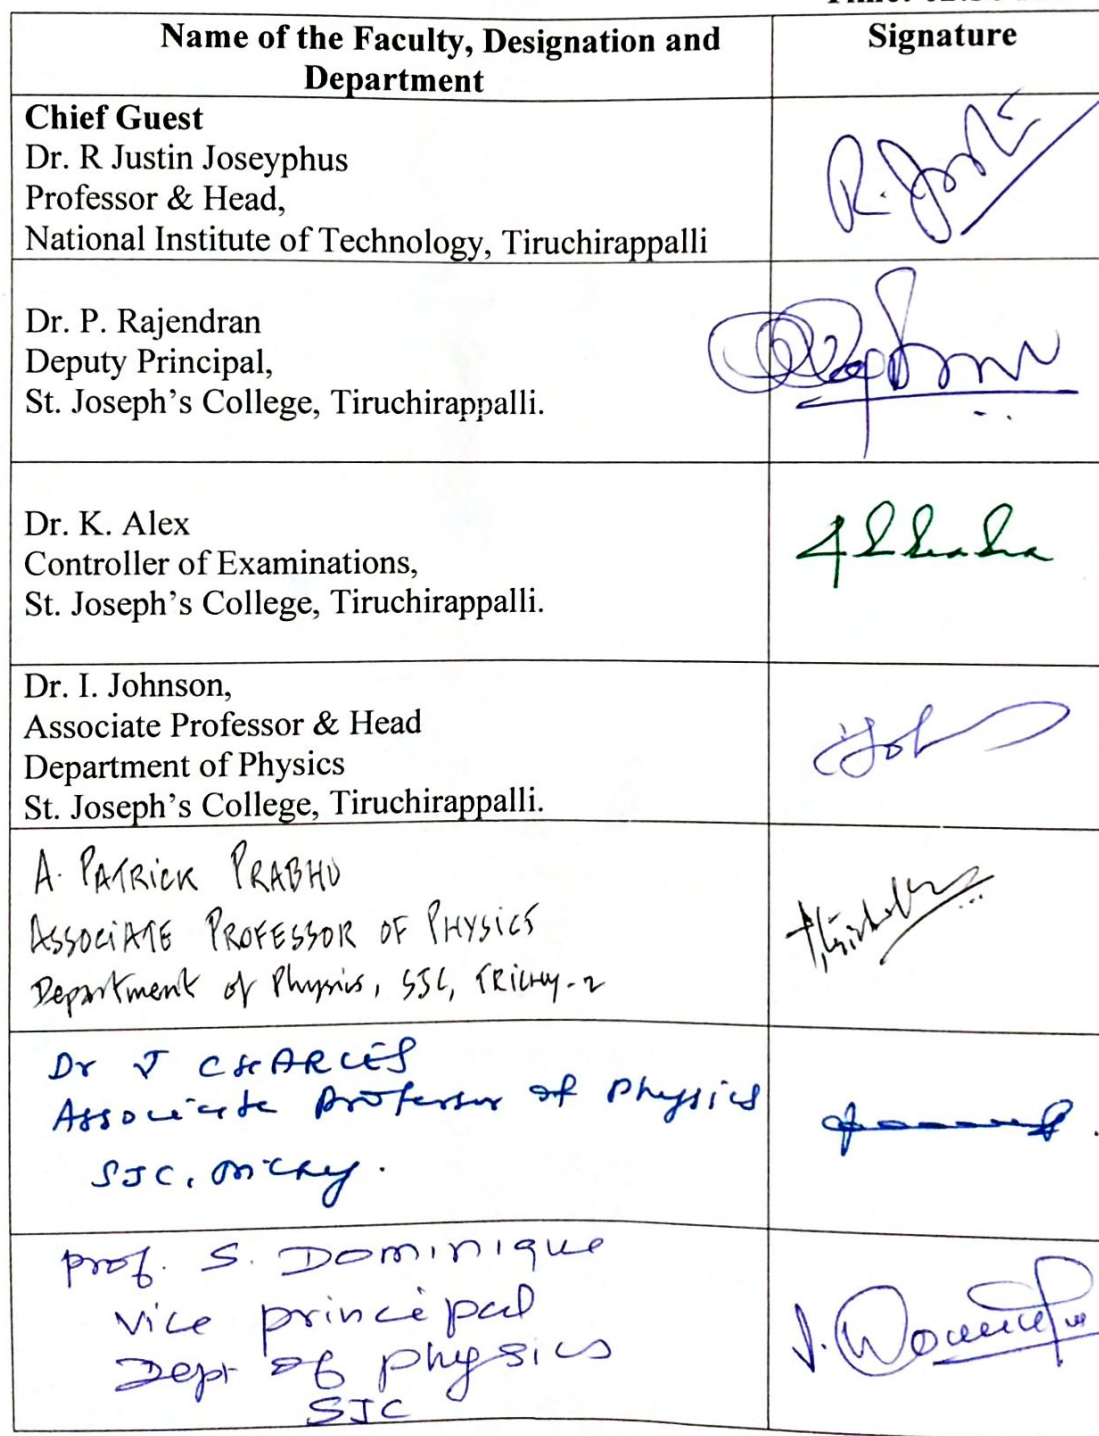 Name of the Faculty, Designation and
Department
Signature
Chief Guest
Dr. R Justin Joseyphus
Professor & Head,
National Institute of Technology, Tiruchirappalli
R.
Dr. P. Rajendran
Deputy Principal,
St. Joseph's College, Tiruchirappalli.
Dr. K. Alex
Controller of Examinations,
St. Joseph's College, Tiruchirappalli.
Dr. I. Johnson,
Associate Professor & Head
Department of Physics
St. Joseph's College, Tiruchirappalli.
A. PATRICK PRABHU
ASSOCIATE PROFESSOR OF PHYSICS
Department of Physics, SJC, TRICHY-2
Dr J CHARLES
Associate Professor of Physics
SJC, Trichy.
Prof. S. Dominique
Vice principal
Dept of physics
SJC